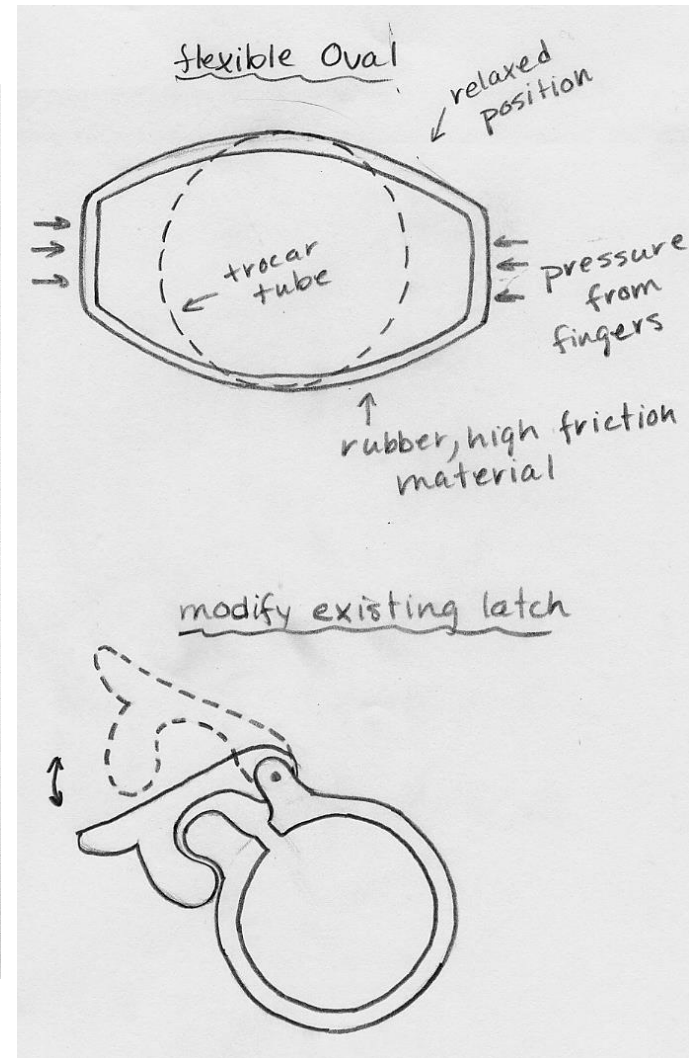 flexible Oval
relaxed
position
trocar
tube
pressure
from
fingers
rubber, high friction
material
modify existing latch